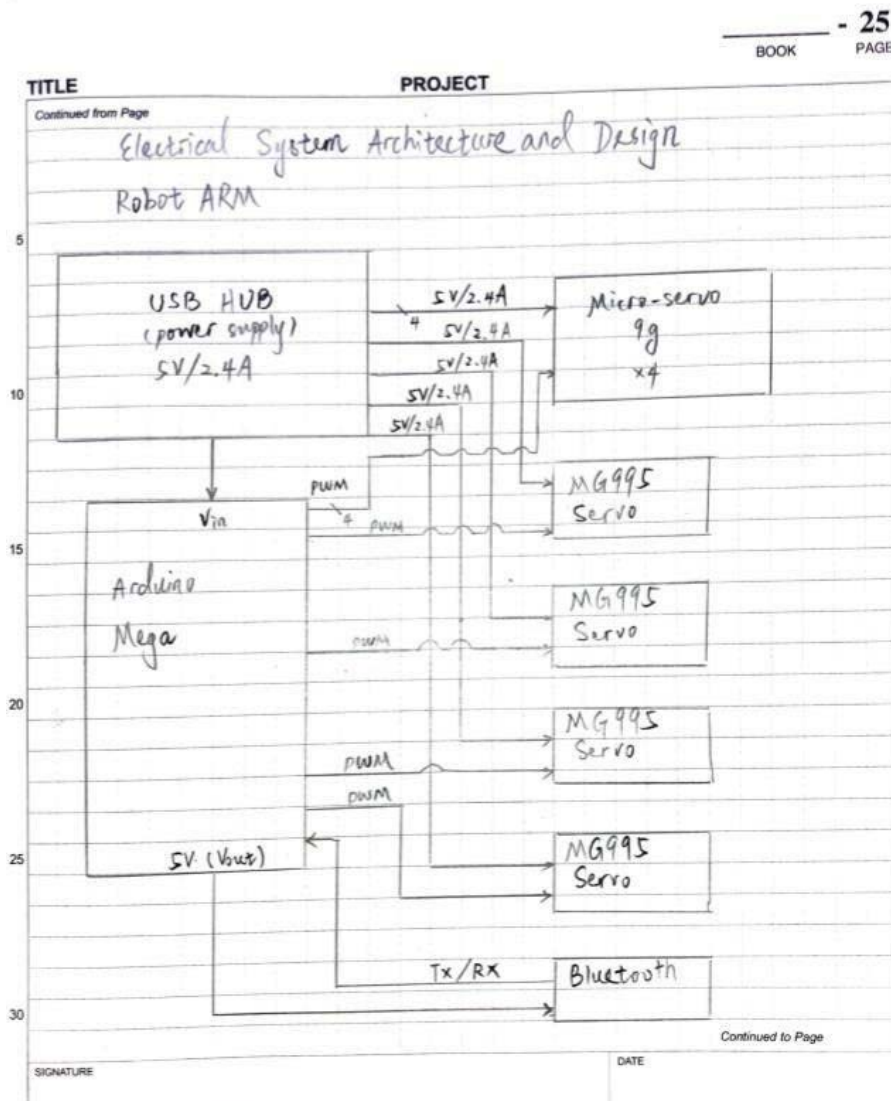 - 25
BOOK PAGE
TITLE PROJECT
Continued from Page
Electrical System Architecture and Design
Robot ARM
5
USB HUB
(power supply)
5V/2.4A
5V/2.4A
4
5V/2.4A
5V/2.4A
5V/2.4A
5V/2.4A
Micro-servo
9g
x4
10
PWM
4
PWM
Vin
MG995
Servo
15
Arduino
Mega
PWM
MG995
Servo
20
PWM
MG995
Servo
PWM
25
5V (Vout)
MG995
Servo
Tx/RX
Bluetooth
30
Continued to Page
SIGNATURE
DATE